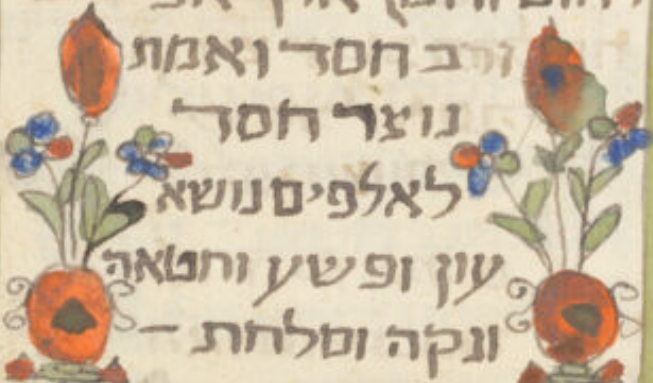 ורב חסד ואמת
נוצר חסד
לאלפים נושא
עון ופשע וחטאה
ונקה וסלחת –